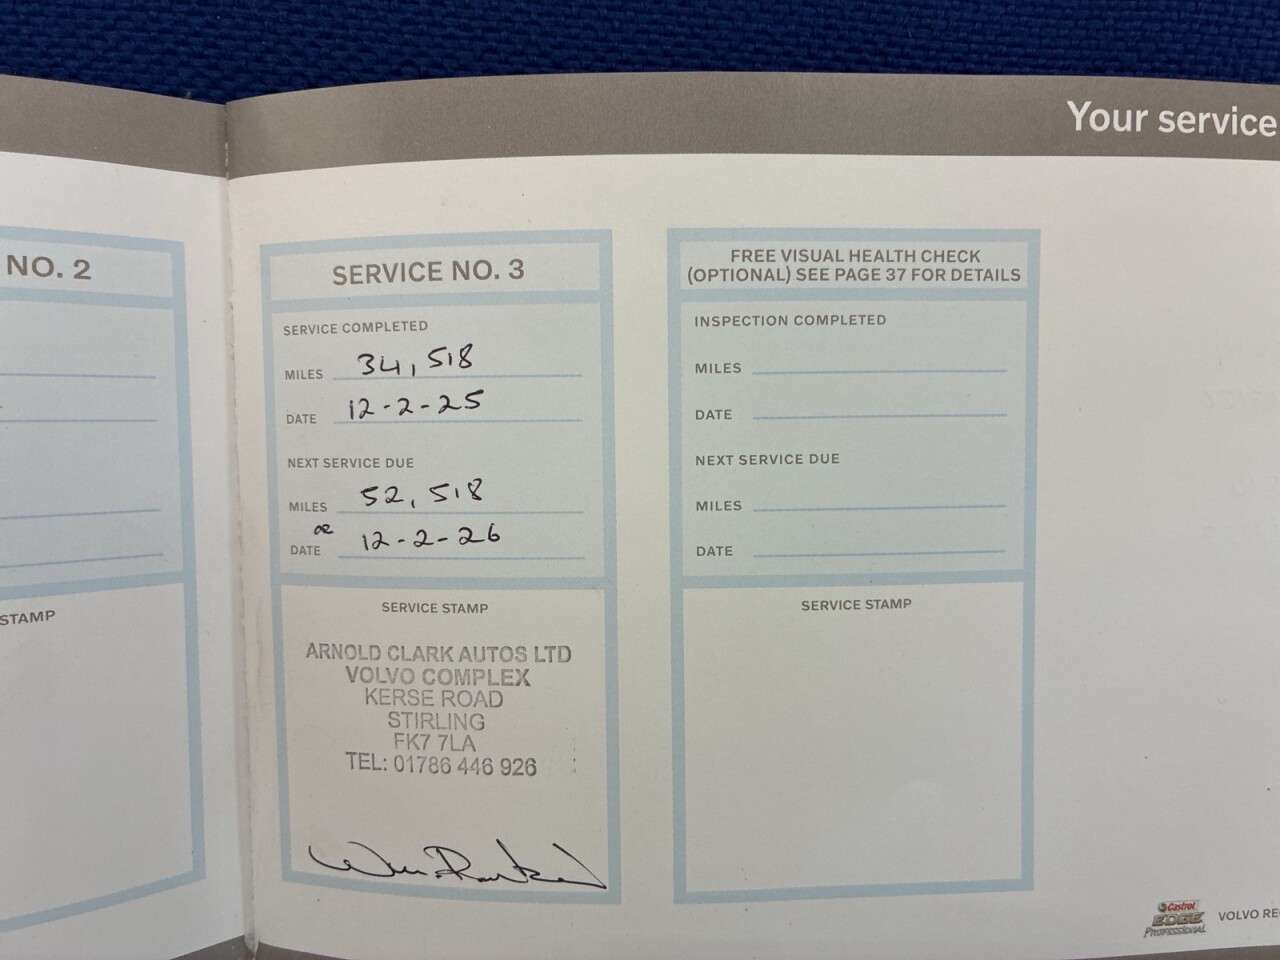 Your service
NO. 2
STAMP
SERVICE NO. 3
SERVICE COMPLETED
MILES 34,518
DATE 12-2-25
NEXT SERVICE DUE
MILES 52,518
or
DATE 12-2-26
SERVICE STAMP
ARNOLD CLARK AUTOS LTD
VOLVO COMPLEX
KERSE ROAD
STIRLING
FK7 7LA
TEL: 01786 446 926
FREE VISUAL HEALTH CHECK
(OPTIONAL) SEE PAGE 37 FOR DETAILS
INSPECTION COMPLETED
MILES
DATE
NEXT SERVICE DUE
MILES
DATE
SERVICE STAMP
Castrol
EDGE
PROFESSIONAL
VOLVO RE